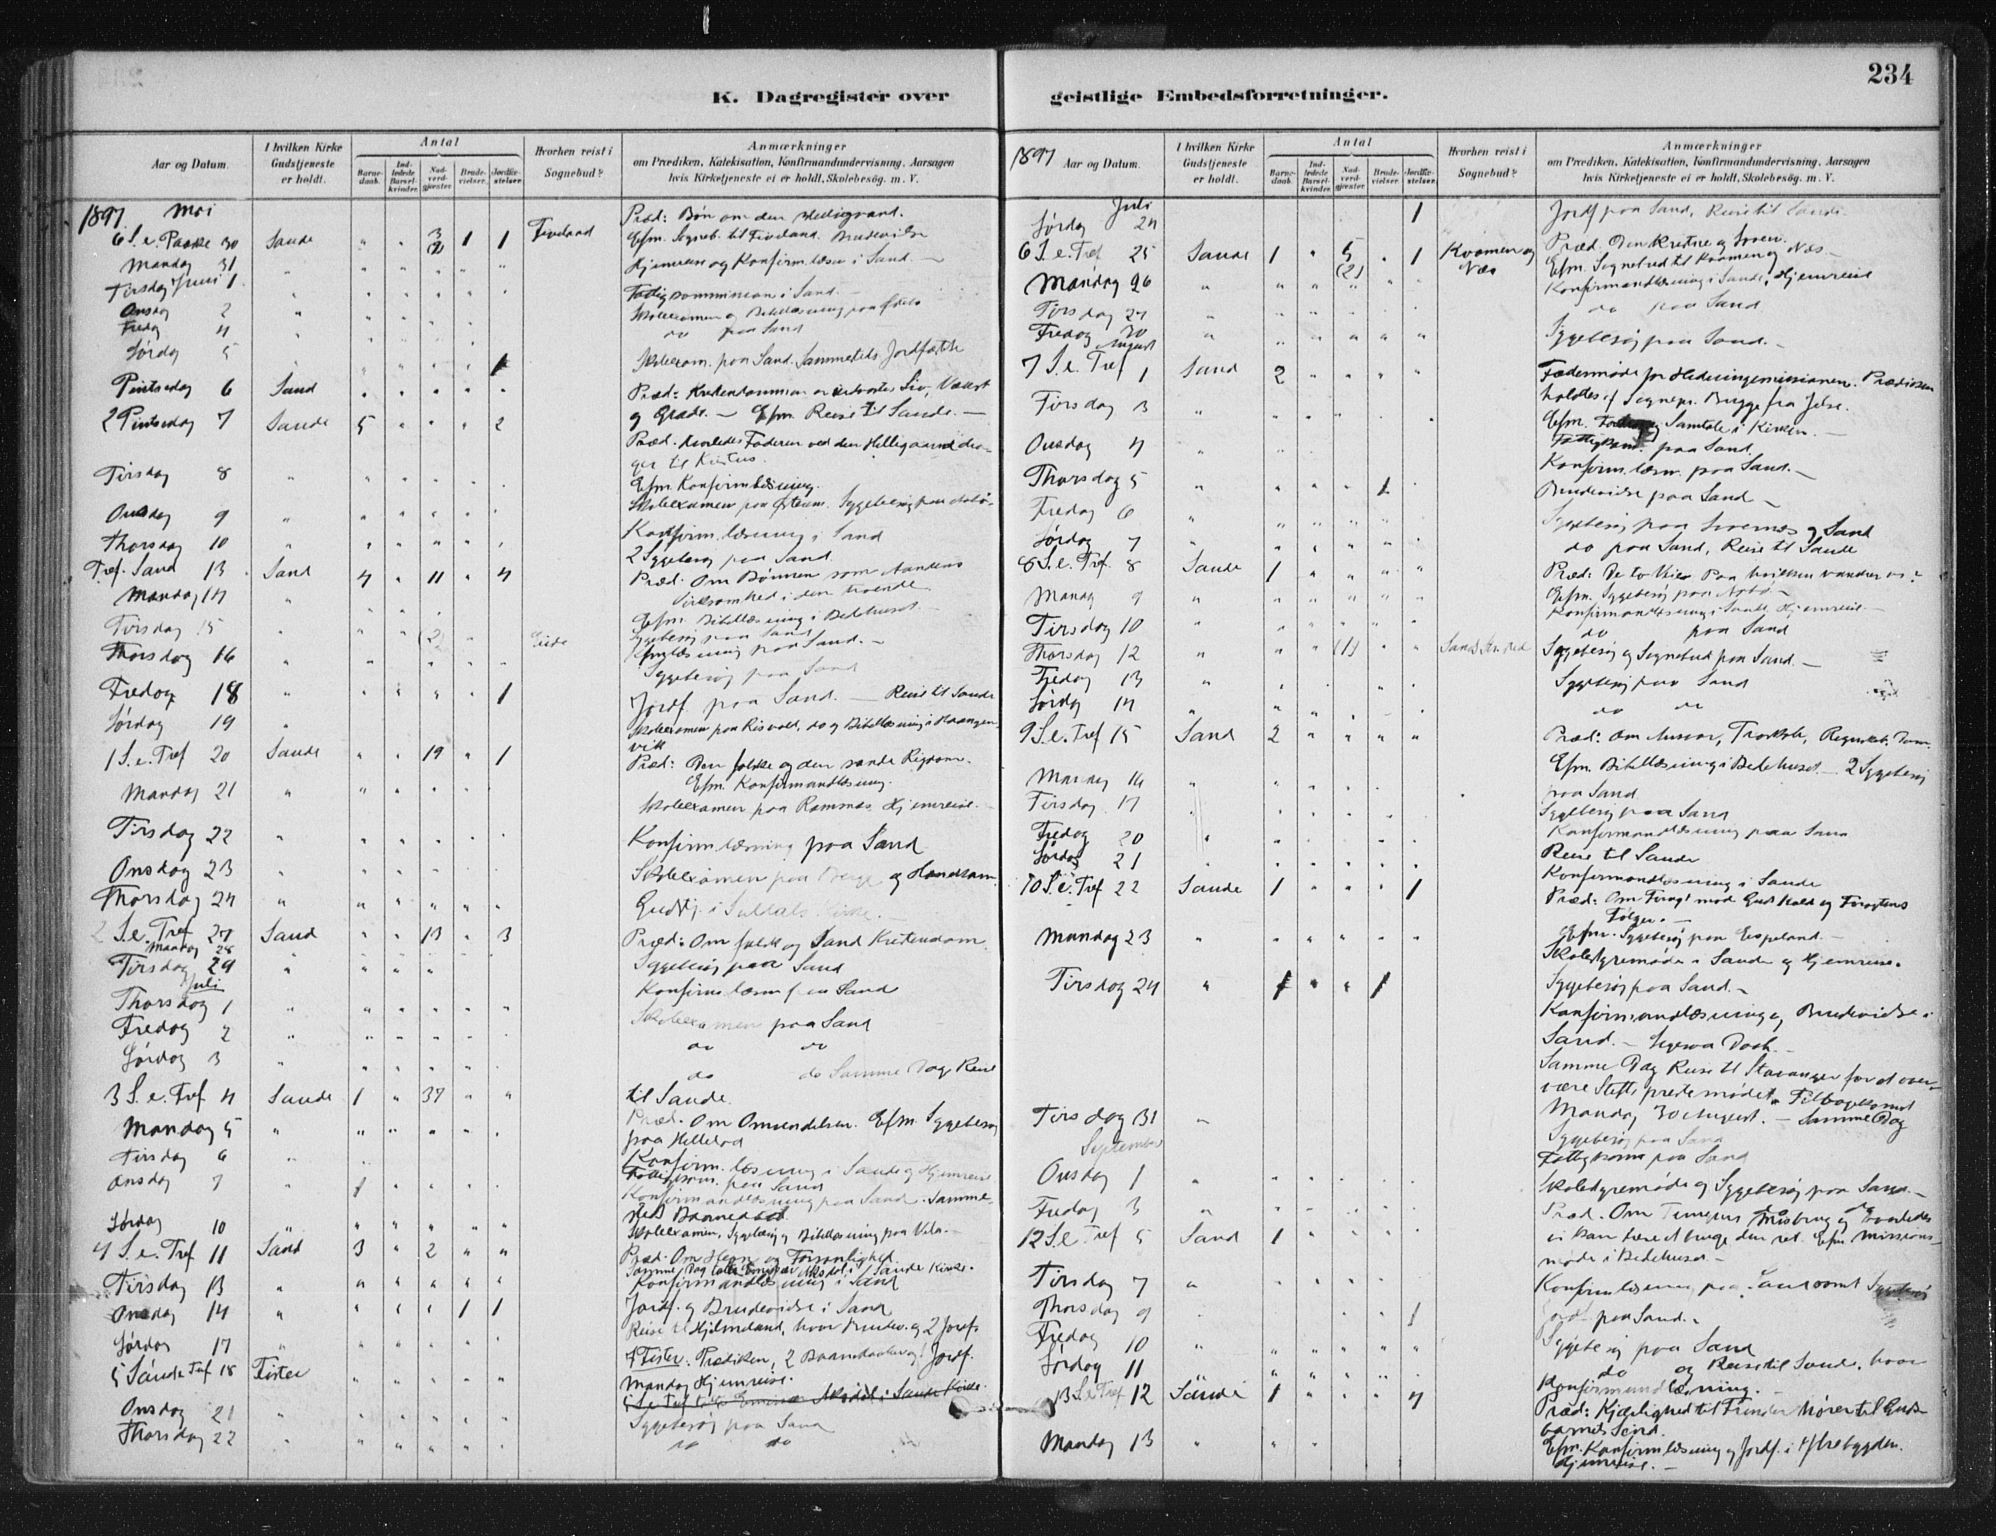 234
K. Dagregister over geistlige Embedsforretninger.
Aar og Datum.
I hvilken Kirke Gudstjeneste er holdt.
Antal
Barnedaab.
Indledede Barselkvinder.
Nadverdgjester.
Brudevielser.
Jordfæstelser.
Hvorhen reist i Sognebud?
Anmærkninger
om Prædiken, Katekisation, Konfirmandundervisning, Aarsagen
hvis Kirketjeneste ei er holdt, Skolebesøg, m. V.
1897 Mai
6 S. e. Paaske 30 Sande " " 3 (2) 1 1 Præd: Bøn om den Helligaand.
Efm. Sogneb. til Brudevielse
Mandag 31 Hjemreise og Konfirm.læsn. i Sand. —
Tirsdag Juni 1 Fattigkommission i Sand.
Onsdag 2 Skoleexamen og Bibellæsning paa
Fredag 4 do paa Sand
Lørdag 5 1 Skoleexam. paa Sand. Jordfæst.
Pintsedag 6 Sand Præd: Kristendommen er Liv, Vækst
og Glæde. — Efm. Reise til Sande. —
2 Pintsedag 7 Sande 5 " " " 2 Præd. Hvorledes Faderen ved den Helligaand drager til Kristus.
Efm. Konfirmlæsning.
Tirsdag 8 Skoleexamen paa Sygebesøg paa
Onsdag 9 Konfirm.læsning i Sand
Thorsdag 10 2 Sygebesøg paa Sand
Tref. Sønd 13 Sand 4 " 11 " 4 Præd. Om Bønnen som Aandens
Virksomhed i den troende
Efm. Bibellæsning i Bedehuset. —
Mandag 14 Sygebesøg paa Sand
Tirsdag 15 (2) Konflæsning paa Sand. —
Thorsdag 16 Sygebesøg paa Sand
Fredag 18 1 Jordf. paa Sand. — Reise til Sande
Lørdag 19 Skoleexamen paa Risvold, do og Bibellæsning i
1 S. e. Tref 20 Sande " " 19 " 1 Præd: Den falske og den sande Rigdom.
Efm. Konfirmandlæsning.
Mandag 21 Skoleexamen paa Ramnæs. Hjemreise.
Tirsdag 22 Konfirm.læsning paa Sand
Onsdag 23 Skoleexamen paa Berge og
Thorsdag 24 Gudstj. i Suldals Kirke. —
2 S. e. Tref 27 Sand " " 13 " 3 Præd: Om falsk og Sand Kristendom.
Mandag 28 Sygebesøg paa Sand
Tirsdag 29 Konfirm.læsn. paa Sand
Juli
Thorsdag 1 Skoleexamen paa Sand
Fredag 2 do do
Lørdag 3 do do Samme Dag Reise
til Sande.
3 S. e. Tref 4 Sande 1 " 37 " " Præd. Om Omvendelsen. Efm. Sygebesøg
paa
Mandag 5 Konfirm.læsning i Sande og Hjemreise
Tirsdag 6 paa Sand
Onsdag 7 1 Konfirmandlæsning paa Sand. Samme-
sted Barnedaab.
Lørdag 10 Skoleexamen, Sygebesøg og Bibellæsning paa
4 S. e. Tref 11 Sand 3 " 2 " " Præd. Om Hevn og Forsonlighed.
Samme Dag i Sande Kirke.
Tirsdag 13 Konfirmandlæsning i Sand
Onsdag 14 1 1 Jordf. og Brudevielse i Sand
Lørdag 17 Reise til Hjelmeland, hvor Brudev. og 2 Jordf.
5 Sønde Tref 18 Fister I Fister. Prædiken, 2 Barnedaab og 1 Jordf.
Mandag Hjemreise.
Onsdag 21 Sygebesøg paa Sand
Thorsdag 22 do do
1897
Aar og Datum.
I hvilken Kirke Gudstjeneste er holdt.
Antal
Barnedaab.
Indledede Barselkvinder.
Nadverdgjester.
Brudevielser.
Jordfæstelser.
Hvorhen reist i Sognebud?
Anmærkninger
om Prædiken, Katekisation, Konfirmandundervisning, Aarsagen
hvis Kirketjeneste ei er holdt, Skolebesøg, m. V.
Juli
Lørdag 24 1 Jordf paa Sand. Reise til Sande.
6 S. e. Tref 25 Sande 1 " 5 (2) " 1 Kvamen og Næs Præd. Den Kristne og Loven.
Efm. Sognebud til Kvamen og Næs —
Mandag 26 Konfirmandlæsning i Sande, Hjemreise
Tirsdag 27 do paa Sand
Fredag 30 Sygebesøg paa Sand. —
August
7 S. e. Tref 1 Sand 2 Fællesmøde for Hedningemissionen. Prædiken
holdtes af Sognepr. Brygge fra Jelse.
Efm. Samtale i Kirken. —
Tirsdag 3 paa Sand
Onsdag 4 Konfirm.læsn. paa Sand. —
Thorsdag 5 1 Brudevielse paa Sand —
Fredag 6 Sygebesøg paa og Sand
Lørdag 7 do paa Sand, Reise til Sande
8 S. e. Tref. 8 Sande 1 Præd: De to Veie Paa hvilken vandrer vi?
Efm. Sygebesøg paa
Mandag 9 Konfirmandlæsning i Sande. Hjemreise. —
Tirsdag 10 do paa Sand
Thorsdag 12 (1) Sygebesøg og Sognebud paa Sand. —
Fredag 13 Sygebesøg paa Sand
Lørdag 14 do do
9 S. e. Tref 15 Sand 2 Præd: Om Ansvar, Troskab, Regnskab, Dom.
Efm. Bibellæsning i Bedehuset. — 2 Sygebesøg
paa Sand
Mandag 16 Sygebesøg paa Sand
Tirsdag 17 Konfirmandlæsning paa Sand
Fredag 20 Reise til Sande
Lørdag 21 Konfirmandlæsning i Sande
10 S. e. Tref 22 Sande 1 " " " 1 Præd: Om Foragt mod Guds Kald og Foragtens
Følger. —
Efm. Sygebesøg paa Espeland. —
Mandag 23 Skolestyremøde i Sande og Hjemreise.
Tirsdag 24 1 " " 1 Sygebesøg paa Sand. —
Konfirmandlæsning og Brudevielse i
Sand. —
Samme Dag Reise til Stavanger for at over-
være Stiftsprestemødet. Tilbagekomst
Mandag 30 August. — Samme Dag
Sygebesøg paa Sand
Tirsdag 31 paa Sand
September
Onsdag 1 Skolestyremøde og Sygebesøg paa Sand. —
Fredag 3
12 S. e. Tref 5 Sand 1 Præd. Om Tungens Misbrug og hvorledes
vi kan lære at bruge den ret. Efm. Missions-
møde i Bedehuset —
Tirsdag 7 Konfirmlæsning paa Sand samt Sygebesøg
Thorsdag 9 1 Jordf. paa Sand. —
Fredag 10 Sygebesøg paa Sand
Lørdag 11 do og Reise til Sande, hvor
Konfirmandlæsning.
13 S. e. Tref 12 Sande 1 " " " 4 Præd: Kjærlighed til Fiender hører til Guds-
barnets Sind.
Efm. Konfirmlæsning og Jordf. i
Mandag 13 Hjemreise. —